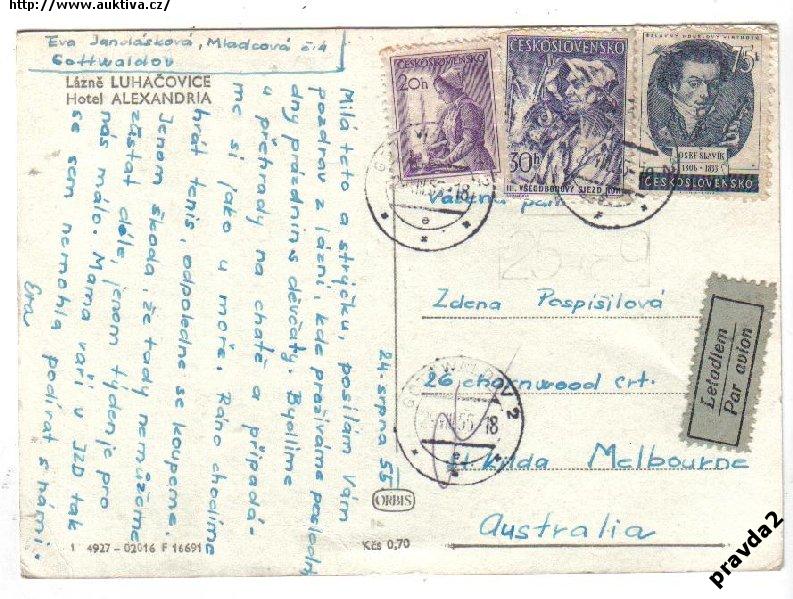 http://www.auktiva.cz/
Eva Janulásková, Mladcová č.4
Gottwaldov
Lázně LUHAČOVICE
Hotel ALEXANDRIA
24 srpna 55
Milá teto a strýčku, posílám Vám
pozdrav z lázní, kde prožíváme poslední
dny prázdnin s děvčaty. Bydlíme
u přehrady na chatě a připadá-
me si jako u moře. Ráno chodíme
hrát tenis, odpoledne se koupeme.
Jenom škoda, že tady nemůžeme
zůstat déle, jenom týden je pro
nás málo. Mama vaří v JZD tak
se sem nemohla podívat s námi.
Eva
ČESKOSLOVENSKO
20h
ČESKOSLOVENSKO
30h
II. VŠEODBOROVÝ SJEZD ROH
75h
JOSEF SLAVÍK
1806 - 1833
ČESKOSLOVENSKO
Vážená paní
Zdena Pospíšilová
26 chornwood crt.
St. Kilda Melbourne
Australia
Letadlem
Par avion
ORBIS
1 4927 - 02016 F 16691
Kčs 0,70
pravda2